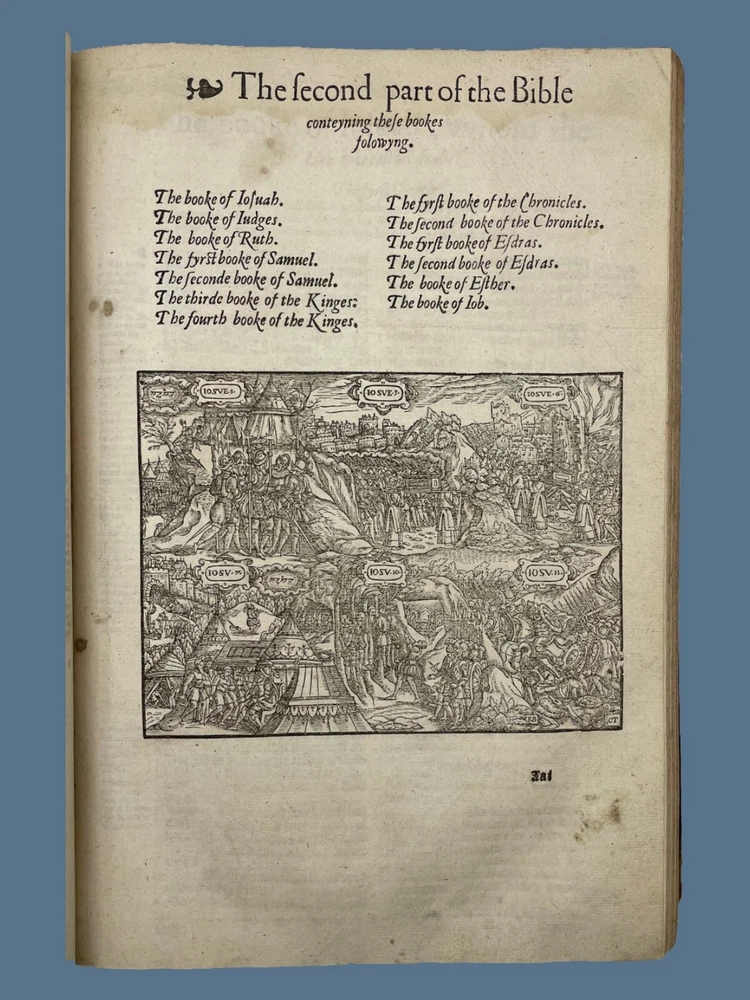 The ſecond part of the Bible
conteyning theſe bookes
folowyng.
The booke of Ioſuah.
The booke of Iudges.
The booke of Ruth.
The fyrſt booke of Samuel.
The ſeconde booke of Samuel.
The thirde booke of the Kinges:
The fourth booke of the Kinges.
The fyrſt booke of the Chronicles.
The ſecond booke of the Chronicles.
The fyrſt booke of Eſdras.
The ſecond booke of Eſdras.
The booke of Eſther.
The booke of Iob.
IOSVE·1·
IOSVE·3·
IOSVE·6·
IOSV·9·
IOSV·10·
IOSV·11·